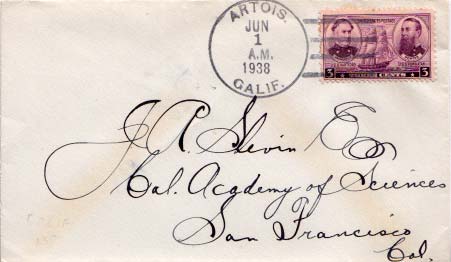 ARTOIS.
JUN
1
A.M.
1938
CALIF.
3 THREE CENTS 3
J. R. Slevin
Cal. Academy of Sciences
San Francisco
Cal.